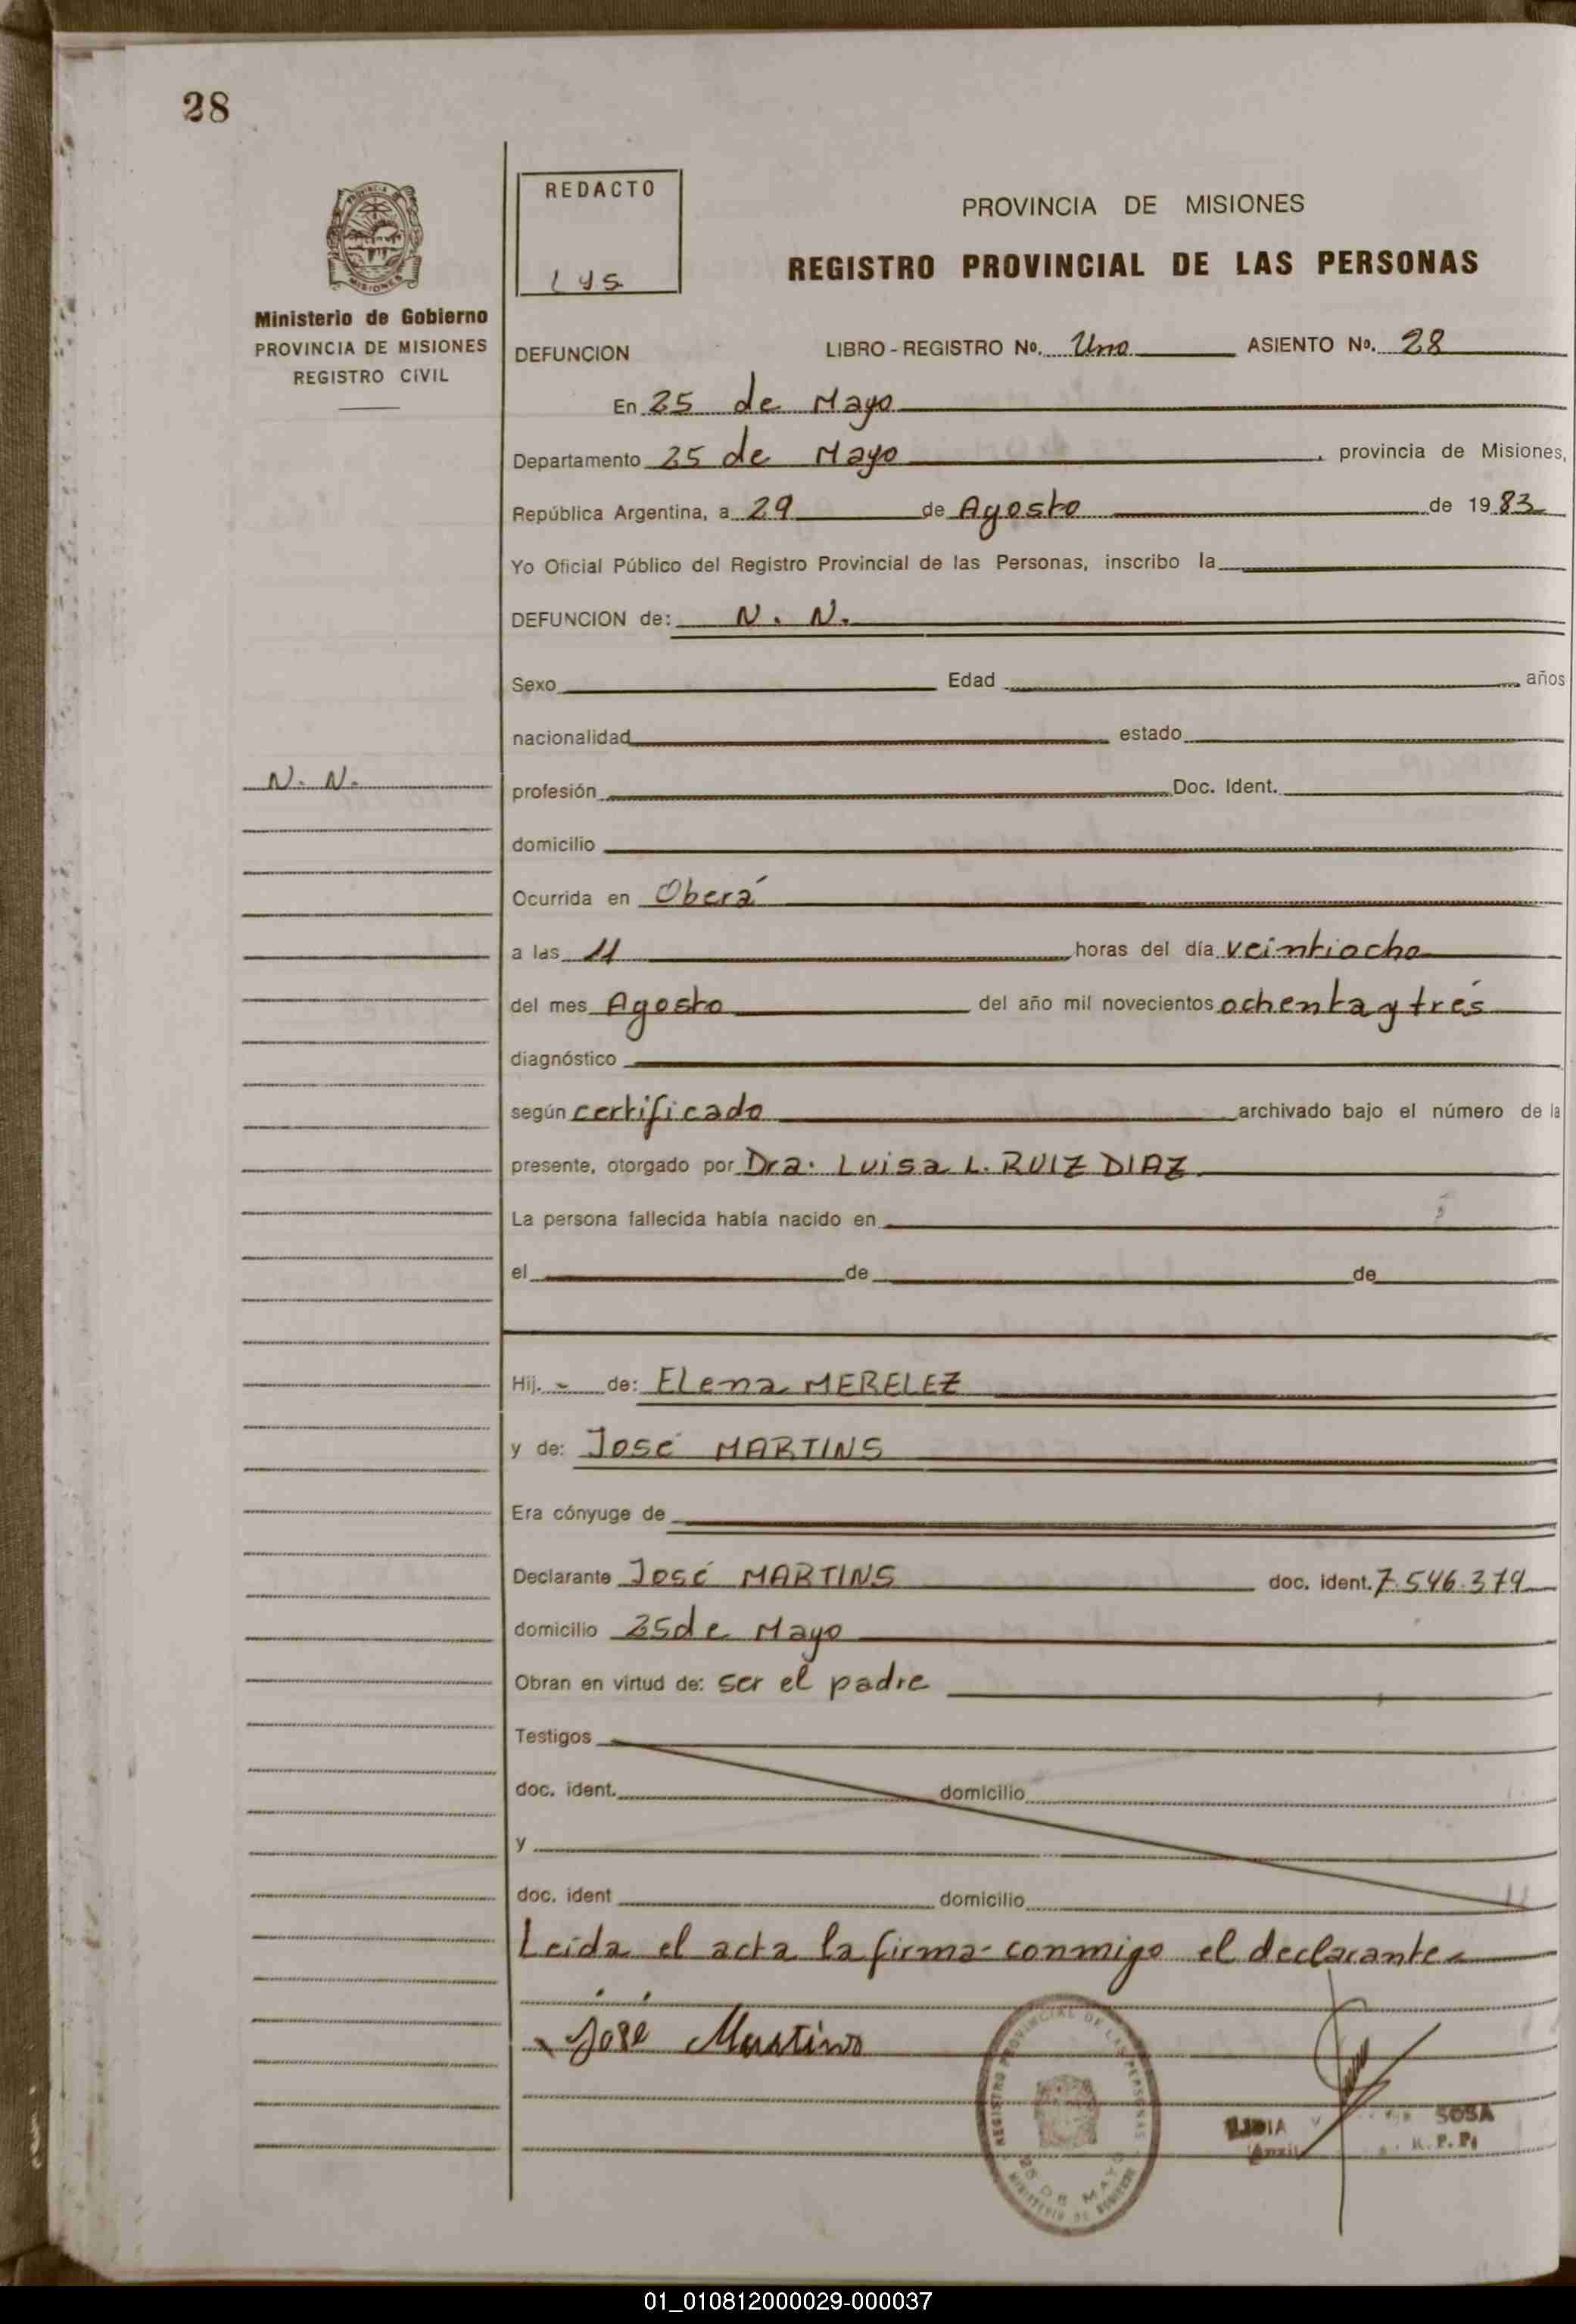 28
REDACTO
LYS
PROVINCIA DE MISIONES
REGISTRO PROVINCIAL DE LAS PERSONAS
MISIONES
Ministerio de Gobierno
PROVINCIA DE MISIONES
REGISTRO CIVIL
DEFUNCION LIBRO - REGISTRO Nº. Uno ASIENTO Nº. 28
En 25 de Mayo
Departamento 25 de Mayo, provincia de Misiones,
República Argentina, a 29 de Agosto de 1983
Yo Oficial Público del Registro Provincial de las Personas, inscribo la
DEFUNCION de: N. N.
Sexo Edad años
nacionalidad estado
N. N.
profesión Doc. Ident.
domicilio
Ocurrida en Oberá
a las 11 horas del día veintiocho
del mes Agosto del año mil novecientos ochenta y trés
diagnóstico
según certificado archivado bajo el número de la
presente, otorgado por Dra. Luisa L. RUIZ DIAZ
La persona fallecida había nacido en
el de de
Hij. - de: Elena MERELEZ
y de: José MARTINS
Era cónyuge de
Declarante José MARTINS doc. ident. 7.546.379
domicilio 25 de Mayo
Obran en virtud de: ser el padre
Testigos
doc. ident. domicilio
y
doc. ident domicilio
Leída el acta la firma conmigo el declarante-
José Martins
REGISTRO PROVINCIAL DE LAS PERSONAS
25 DE MAYO
MINISTERIO DE GOBIERNO
LIDIA SOSA
R. P. P.
01_010812000029-000037